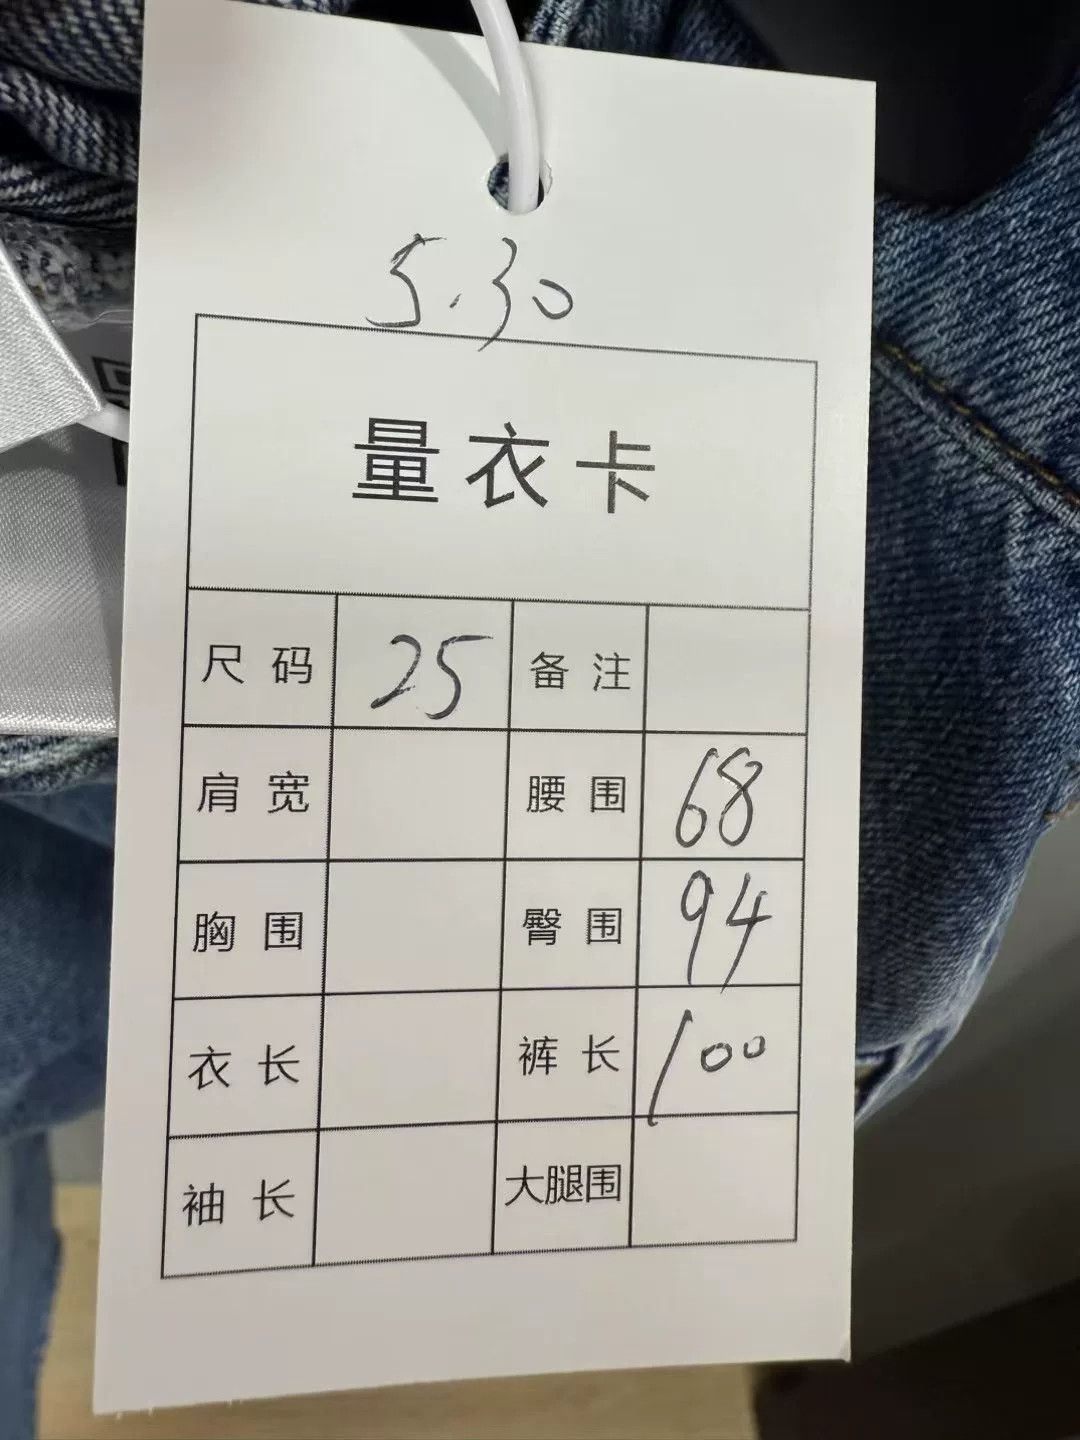 5.30
量衣卡
尺码 25 备注
肩宽 腰围 68
胸围 臀围 94
衣长 裤长 100
袖长 大腿围